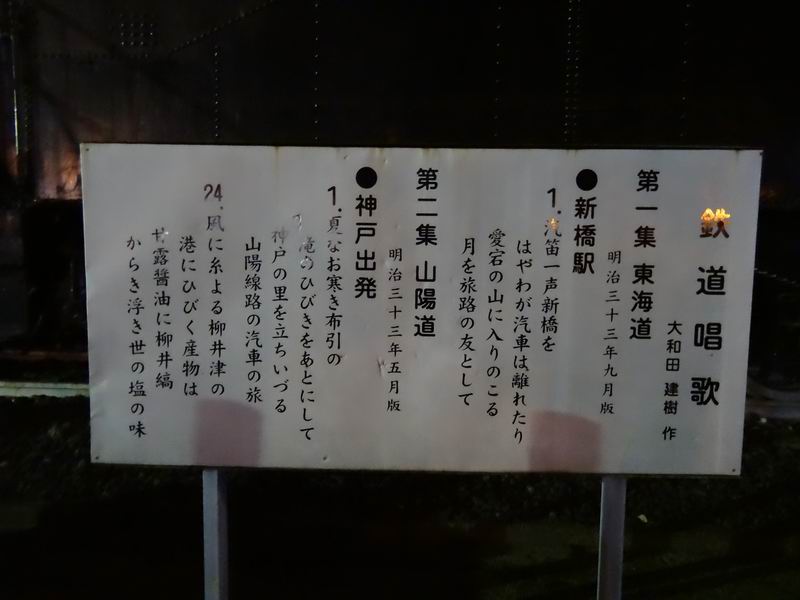 鉄道唱歌
大和田 建樹 作
第一集 東海道
明治三十三年九月版
●新橋駅
1.汽笛一声新橋を
はやわが汽車は離れたり
愛宕の山に入りのこる
月を旅路の友として
第二集 山陽道
明治三十三年五月版
●神戸出発
1.夏なお寒き布引の
滝のひびきをあとにして
神戸の里を立ちいづる
山陽線路の汽車の旅
24.風に糸よる柳井津の
港にひびく産物は
甘露醤油に柳井縞
からき浮き世の塩の味